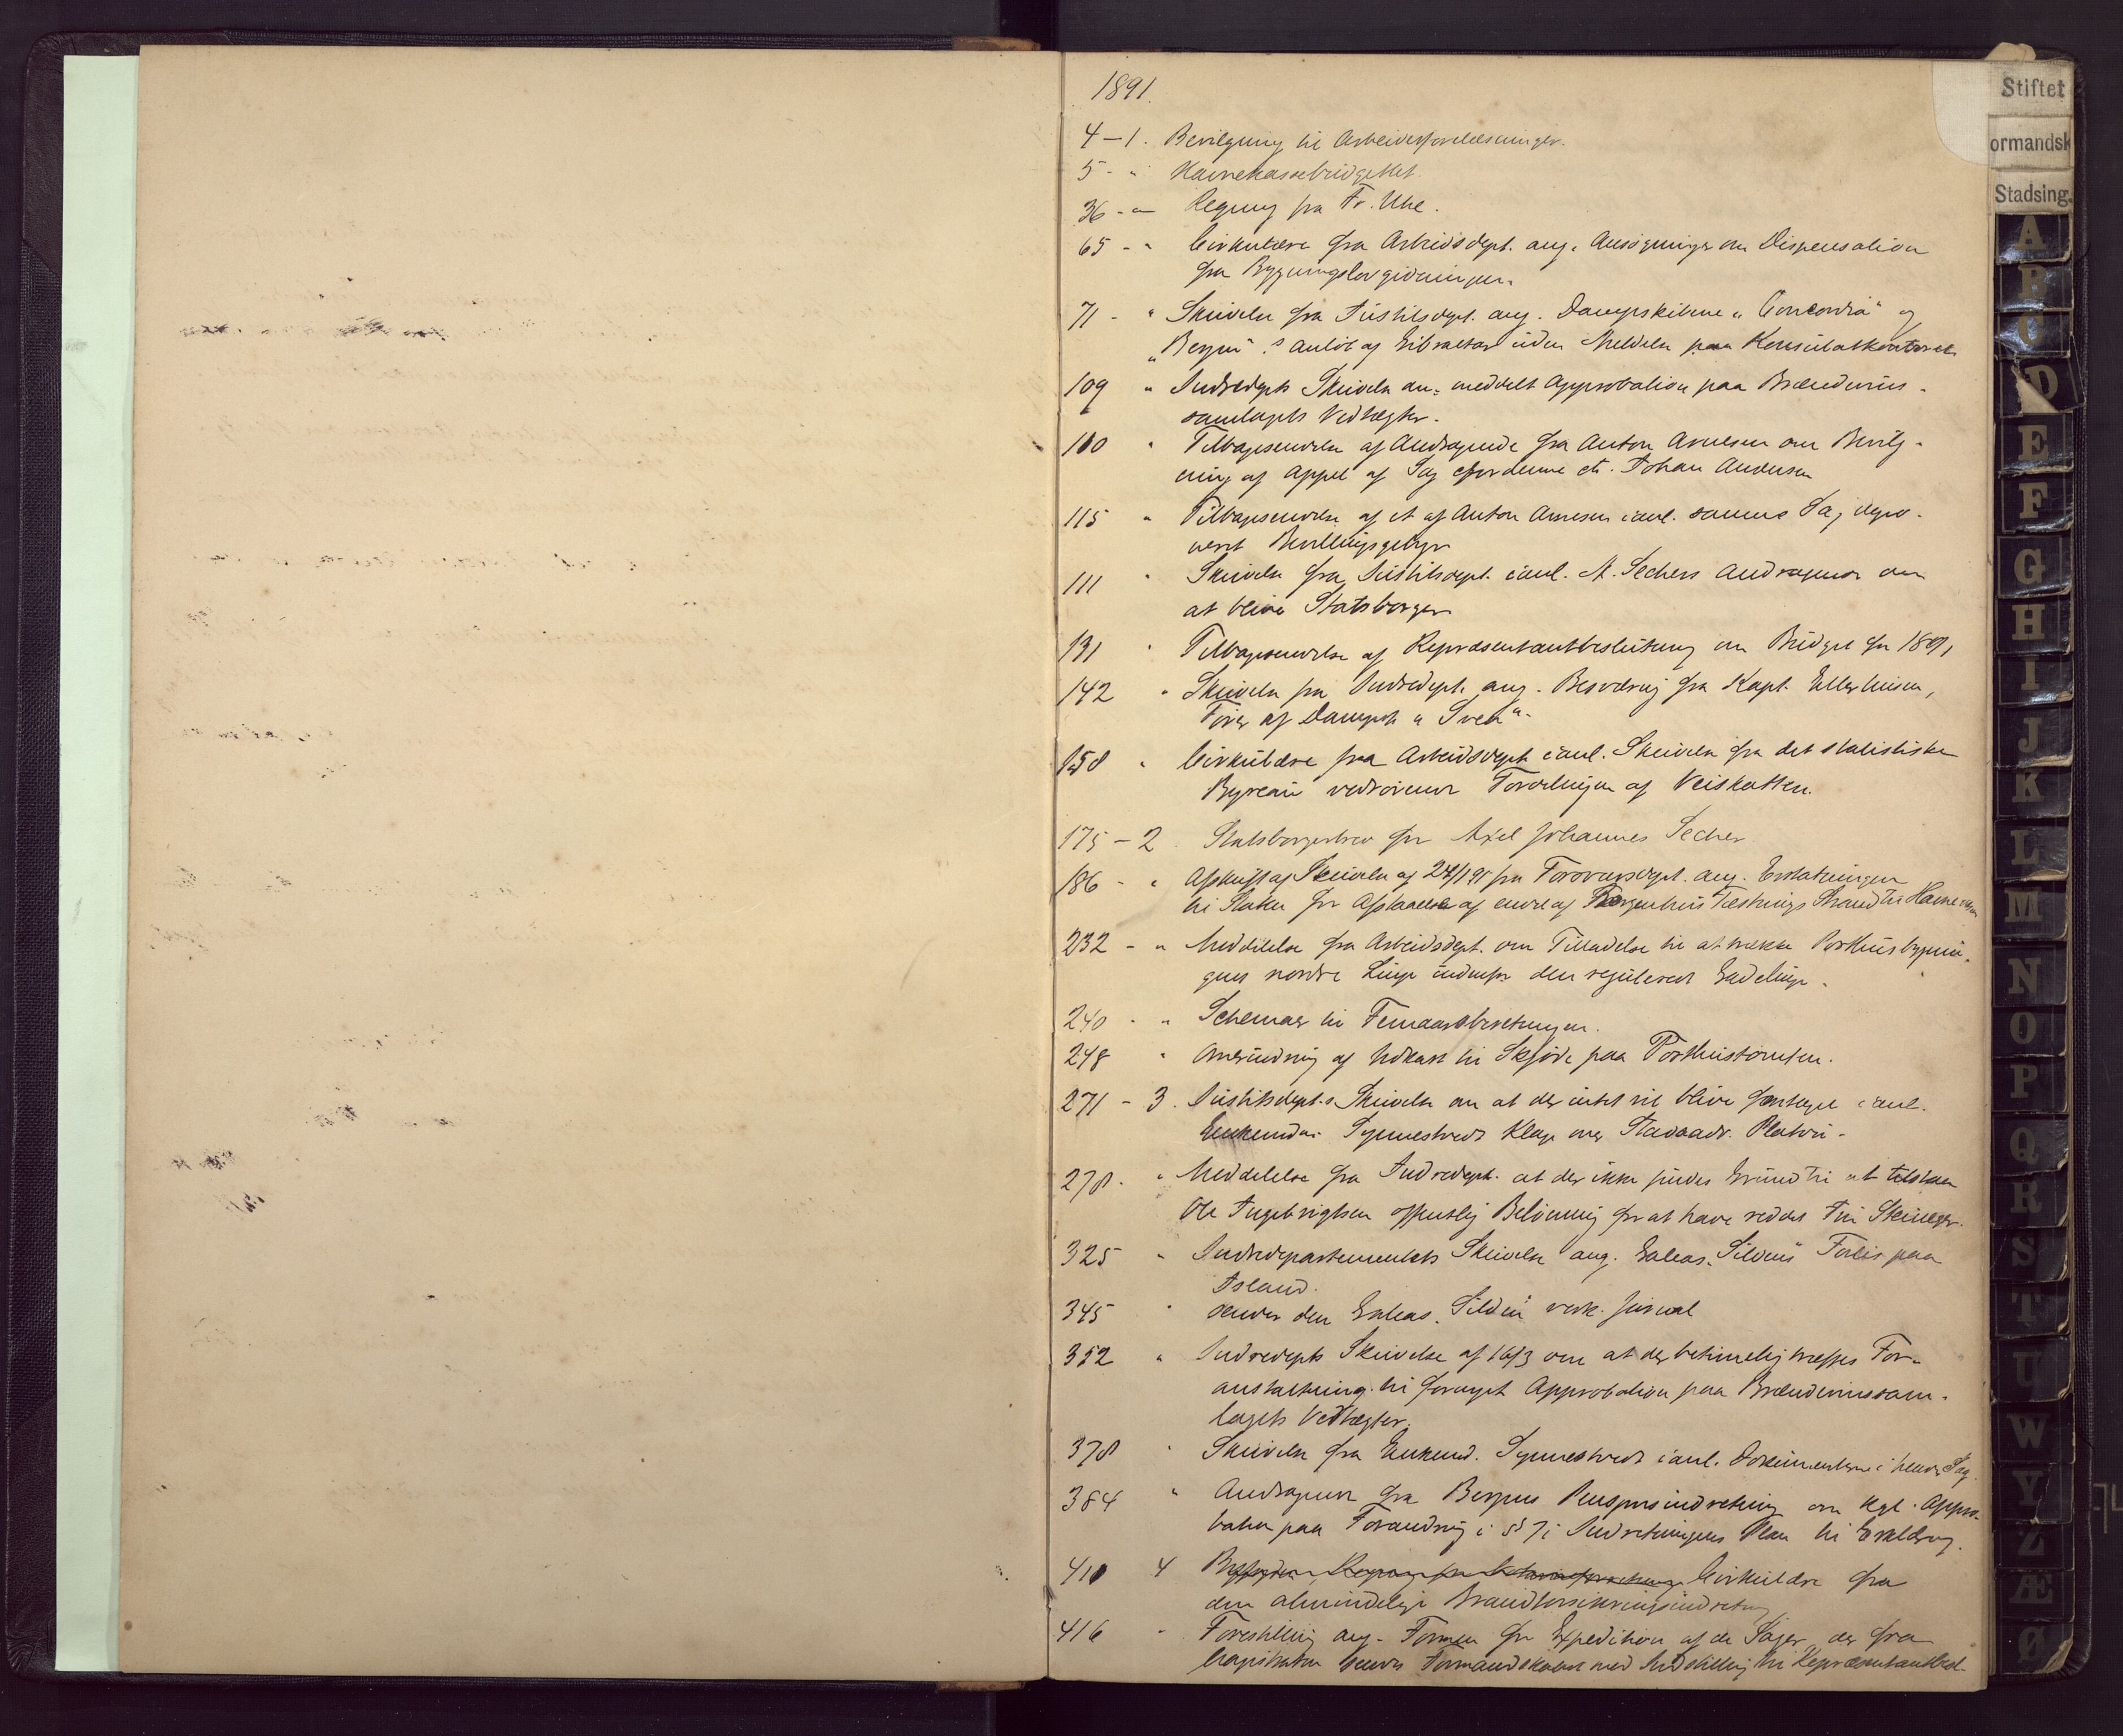 1891.
4-1. Bevilgning til Arbeiderforelæsninger.
5-" Havnekassebudgettet.
36-" Regning fra Fr. Uhe.
65-" Cirkulære fra Arbeidsdept. ang. Ansøgninger om Dispensation
fra Bygningslovgivningen.
71-" Skrivelse fra Justitsdept. ang. Dampskibene "Concordia" og
"Bergen"s Anløb af Gibraltar uden Meldelse paa Konsulatkontoret
109 " Indredepts Skrivelse om meddelt Approbation paa Brændevins-
samlagets Vedtægter.
110 " Tilbagesendelse af Andragende fra Anton Arnesen om Bevilg-
ning af Appel af Sag Johan Andersen
115 " Tilbagesendelse af et af Anton Arnesen i anl. samme Sag depo-
neret Bevillingsgebyr
111 " Skrivelse fra Justitsdept. i anl. A. Sechers Andragende om
at blive Statsborger
131 " Tilbagesendelse af Repræsentantbeslutning om Budget for 1891
142 " Skrivelse fra Indredept. ang. Besværing fra Kapt. Ellerhusen,
Fører af Dampsk "Svea".
158 " Cirkulære fra Arbeidsdept i anl. Skrivelse fra det statistiske
Byreau vedrørende Fordelingen af Veiskatten.
175-2 Statsborgerbrev for Axel Johannes Secher
186-" Afskrift af Skrivelse af 24/1 91 fra Forsvarsdept. ang. Erstatningen
til Staten for Afstaaelse af endel af Bergenhus Fæstnings Strand til Havnevæsen
232-" Meddelelse fra Arbeidsdept. om Tilladelse til at trække Posthusbygnin-
gens nordre Linje indenfor den regulerede Gadelinje.
240-" Schemaer til Femaarsberetningen.
248 " Anmodning af Udkast til Skjøde paa Posthustomten.
271-3. Justitsdept.s Skrivelse om at der intet vil blive foretaget i anl.
Enkemdm. Synnestvedts Klage over Stadsadv. Platou.
278. " Meddelelse fra Indredept. at der ikke findes Grund til at tilstaa
Ole Ingebrigtsen offentlig Belønning for at have reddet
325 " Indredepartementets Skrivelse ang. Galeas "Silden"s Forlis paa
Island.
345 " sender den Galeas "Silden" vedk. Journal
352 " Indredepts Skrivelse af 16/3 om at der betimelig træffes For-
anstaltning til fornyet Approbation paa Brændevinssam-
lagets Vedtægter.
378 " Skrivelse fra Enkemd. Synnestvedt i anl. Dokumenterne i hendes Sag.
384 " Andragende fra Bergens Pensjonsindretning om kgl. Appro-
bation paa Forandring i § 7 i Indretningens Plan til Erklæring.
410 4 Cirkulære fra
den almindelige Brandforsikringsindretning
416 " Forestilling ang. Formen for Expedition af de Sager, der fra
Magistraten sendes Formandskabet med Indstilling til Repræsentantbesl.
Stiftet
ormandsk
Stadsing.
A
B
C
D
E
F
G
H
I
J
K
L
M
N
O
P
Q
R
S
T
U
W
Y
Z
Æ
Ø